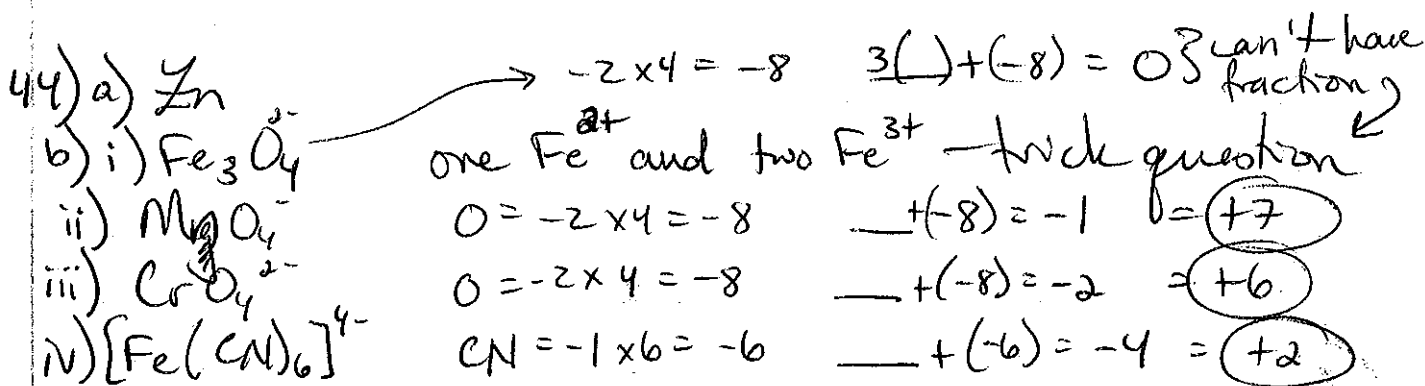 44) a) Zn → -2 x 4 = -8 3(__) + (-8) = 0 } can't have fraction
b) i) Fe₃O₄²⁻ one Fe²⁺ and two Fe³⁺ - trick question
ii) MnO₄⁻ O = -2 x 4 = -8 __ + (-8) = -1 = +7
iii) CrO₄²⁻ O = -2 x 4 = -8 __ + (-8) = -2 = +6
iv) [Fe(CN)₆]⁴⁻ CN = -1 x 6 = -6 __ + (-6) = -4 = +2